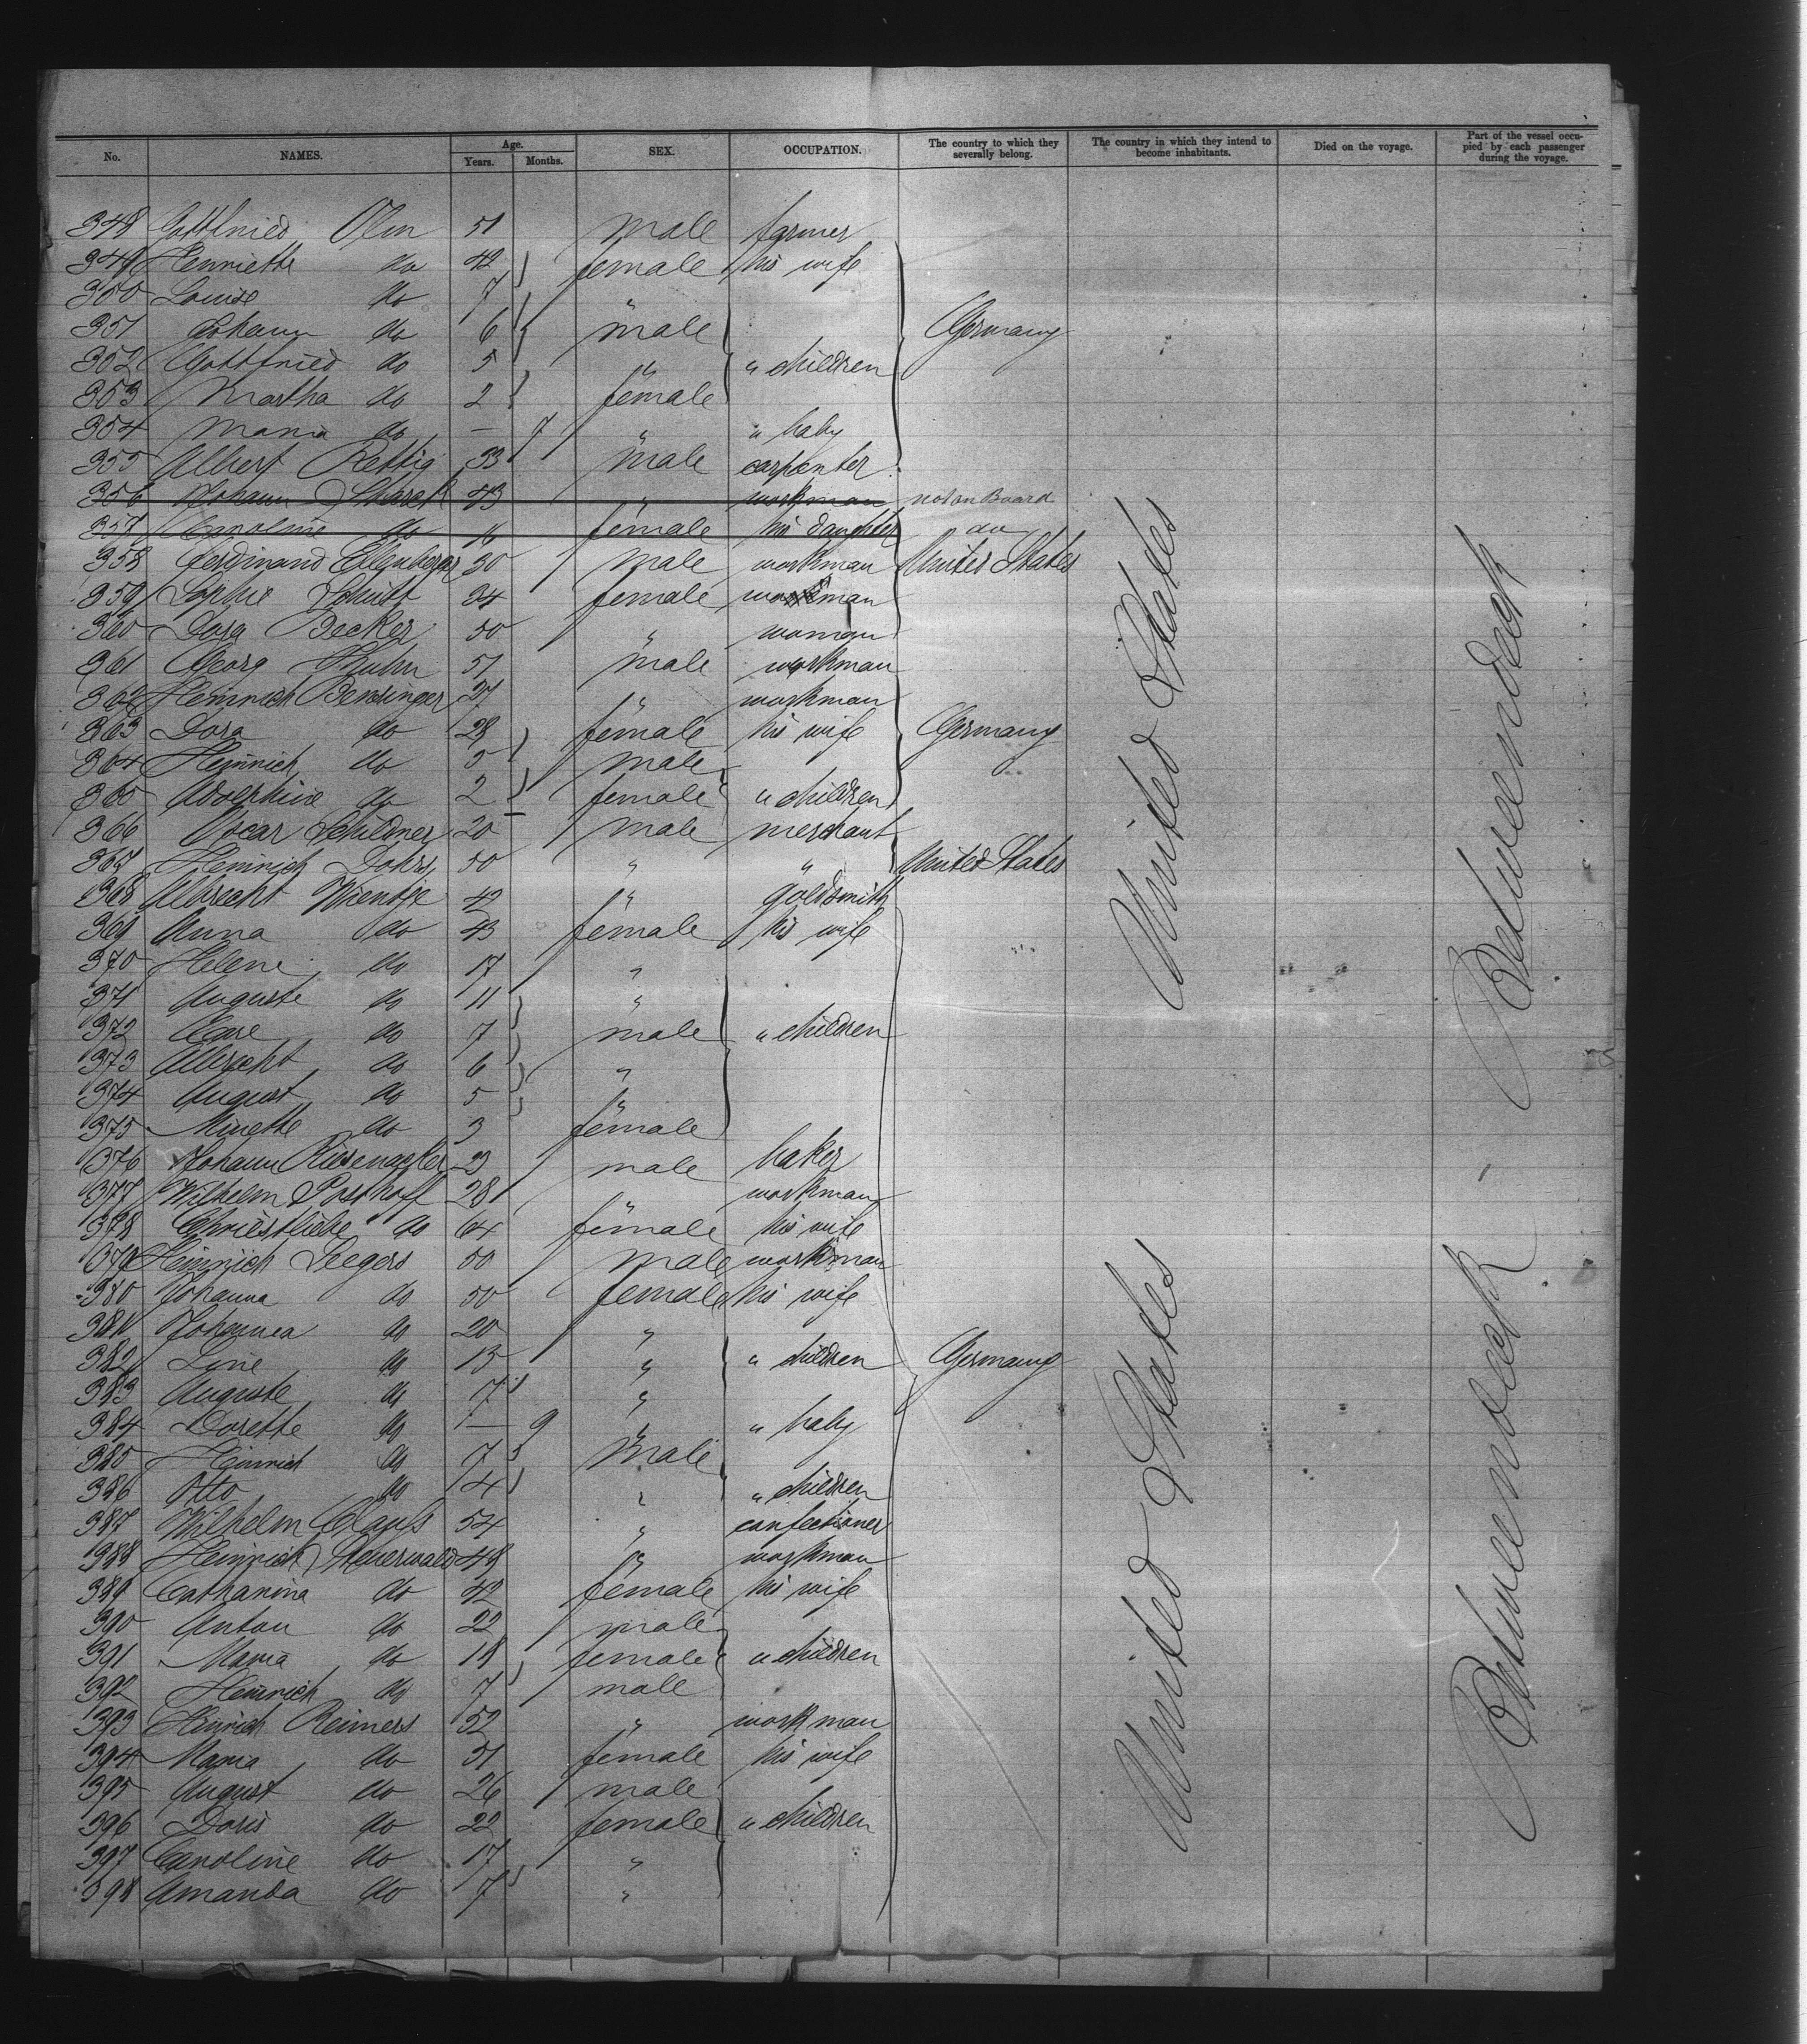 No. NAMES. Age. Years. Months. SEX. OCCUPATION. The country to which they severally belong. The country in which they intend to become inhabitants. Died on the voyage. Part of the vessel occupied by each passenger during the voyage.
348 Gottfried 51 male farmer
349 Henriette do 42 female his wife
350 Louise do 7 "
351 Johann do 6 male Germany
352 Gottfried do 5 " " children
353 Martha do 2 female
354 Maria do — 7 " " baby
355 Albert Rettig 33 male carpenter
356 Johann 43 " workman not on Board
357 Caroline do 16 female his daughter do
358 Ferdinand Ellenberger 30 male workman United States
359 Sophie Schütt 24 female
360 Dora Becker 50 " woman
361 Georg 51 male workman
362 Heinrich Bensinger 27 " workman
363 Dora do 28 female his wife Germany
364 Heinrich do 5 male
365 do 2 female " children
366 Oscar Schildner 20 male merchant
367 Heinrich Dohrs 50 " " United States
368 Albrecht Wientje 42 " goldsmith
369 Anna do 43 female his wife
370 Helene do 17 "
371 Auguste do 11 "
372 Carl do 7 male " children
373 Albrecht do 6 "
374 August do 5 "
375 Minette do 3 female
376 Johann 23 male baker
377 Wilhelm Posthoff 28 " workman
378 Christliebe do 64 female his wife
379 Heinrich Seegers 50 male workman
380 Johanna do 50 female his wife
381 Johanna do 20 "
382 Line do 15 " " children Germany
383 Auguste do 7 "
384 Dorette do — 9 " " baby
385 Heinrich do 7 male
386 Otto do 4 " " children
387 Wilhelm Clauss 54 " confectioner
388 Heinrich Steuerwald 48 " workman
389 Catharina do 42 female his wife
390 Anton do 22 male
391 Maria do 18 female " children
392 Heinrich do 7 male
393 Hinrich Reimers 52 " workman
394 Maria do 51 female his wife
395 August do 26 male
396 Doris do 22 female " children
397 Caroline do 17 "
398 Amanda do 7 "
United States
Betweendeck
United States
Betweendeck